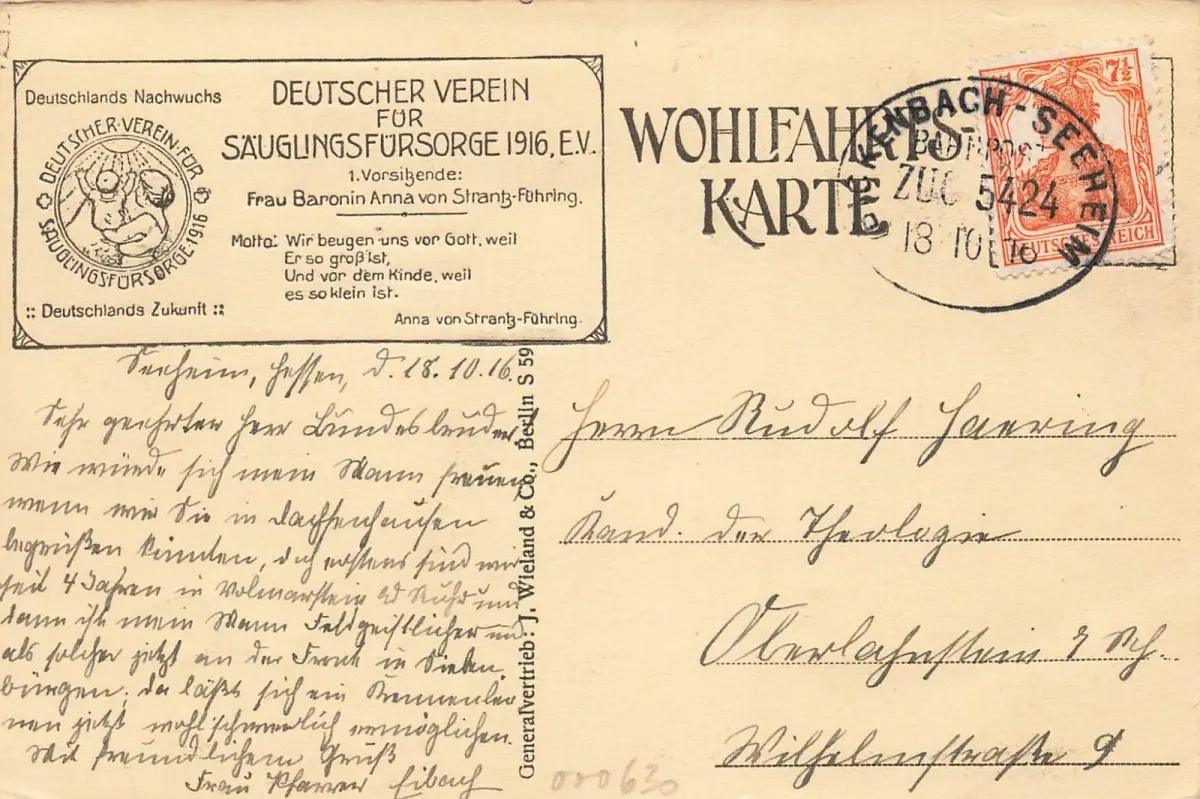 Deutschlands Nachwuchs
DEUTSCHER VEREIN FÜR SÄUGLINGSFÜRSORGE 1916
:: Deutschlands Zukunft ::
DEUTSCHER VEREIN
FÜR
SÄUGLINGSFÜRSORGE 1916, E.V.
1. Vorsitzende:
Frau Baronin Anna von Strantz-Führing.
Motto: Wir beugen uns vor Gott, weil
Er so groß ist,
Und vor dem Kinde, weil
es so klein ist.
Anna von Strantz-Führing.
WOHLFAHRTS-
KARTE
BICKENBACH-SEEHEIM
BAHNPOST
ZUG 5424
18 10 16
7½
DEUTSCHES REICH
Seeheim, Hessen, d. 18.10.16.
Sehr geehrter Herr Bundesbruder,
Wie würde sich mein Mann freuen,
wenn wir Sie in Dachsenhausen
begrüßen könnten, doch erstens sind wir
seit 4 Jahren in Volmarstein a/d Ruhr und
dann ist mein Mann Feldgeistlicher und
als solcher jetzt an der Front in Sieben-
bürgen; da läßt sich ein Kennenler-
nen jetzt wohl schwerlich ermöglichen.
Mit freundlichem Gruß
Frau Pfarrer Eibach
Generalvertrieb: J. Wieland & Co., Berlin S 59
Herrn Rudolf Haering
Kand. der Theologie
Oberlahnstein a Rh.
Wilhelmstraße 9
000630